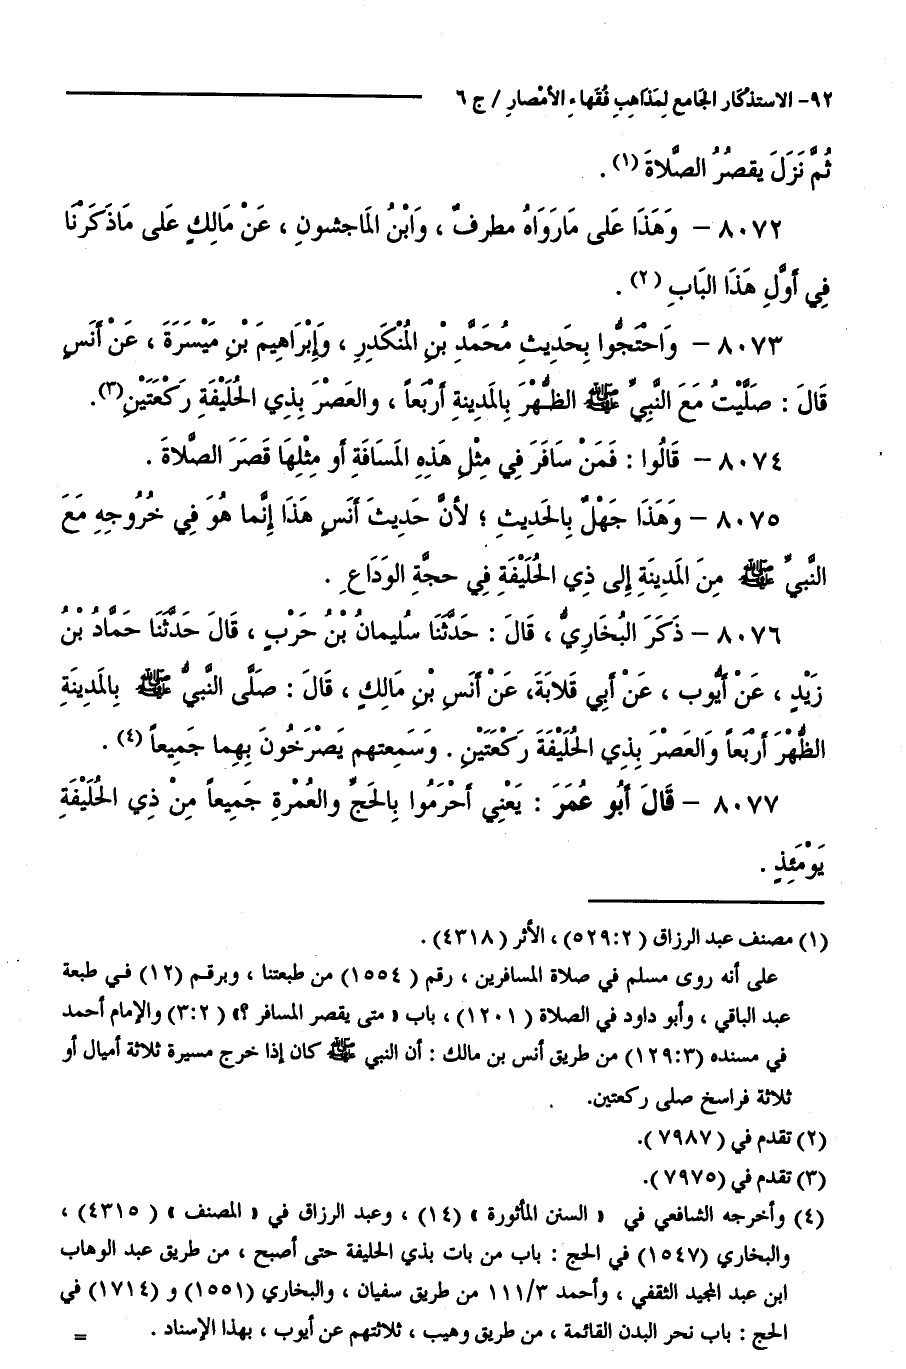 ٩٢- الاستذكار الجامع لمذاهب فقهاء الأمصار / ج ٦
ثُمَّ نَزَلَ يقصُرُ الصَّلَاةَ (١) .
٨٠٧٢ – وَهَذَا عَلى مَارَوَاهُ مطرفٌ ، وَابْنُ الْمَاجشونِ ، عَنْ مَالِكٍ عَلى مَاذَكَرْنَا
فِي أَوَّلِ هَذَا البَابِ (٢) .
٨٠٧٣ – وَاحْتَجُّوا بِحَدِيثِ مُحَمَّدِ بْنِ الْمُنْكَدِرِ ، وَإِبْرَاهِيمَ بْنِ مَيْسَرَةَ ، عَنْ أَنَسٍ
قَالَ : صَلَّيْتُ مَعَ النَّبِيِّ ﷺ الظُّهْرَ بِالْمَدِينةِ أَرْبَعاً ، والعَصْرَ بِذِي الْحُلَيْفَةِ رَكْعَتَيْنِ(٣).
٨٠٧٤ – قَالُوا : فَمَنْ سَافَرَ فِي مِثْلِ هَذِهِ الْمَسَافَةِ أو مِثْلِهَا قَصَرَ الصَّلاةَ .
٨٠٧٥ – وَهَذَا جَهْلٌ بِالْحَدِيثِ ؛ لأنَّ حَدِيثَ أَنَسٍ هَذَا إِنَّما هُوَ فِي خُرُوجِهِ مَعَ
النَّبيِّ ﷺ مِنَ الْمَدِينَةِ إِلى ذِي الْحُلَيْفَةِ فِي حجَّةِ الوَدَاعِ .
٨٠٧٦ – ذَكَرَ البُخَارِيُّ ، قَالَ : حَدَّثَنَا سُليمانُ بْنُ حَرْبٍ ، قَالَ حَدَّثَنَا حَمَّادُ بْنُ
زَيْدٍ ، عَنْ أَيُّوب ، عَنْ أَبِي قِلابَةَ، عَنْ أَنَسِ بْنِ مَالِكٍ ، قَالَ : صَلَّى النَّبِيُّ ﷺ بِالْمَدِينَةِ
الظُّهْرَ أَرْبَعاً وَالعَصْرَ بِذِي الْحُلَيْفَةَ رَكْعَتَيْنِ . وَسَمِعتهم يَصْرَخُونَ بِهِما جَمِيعاً (٤) .
٨٠٧٧ – قَالَ أَبُو عُمَرَ : يَعْنِي أَحْرَمُوا بِالْحَجِّ والعُمْرةِ جَمِيعاً مِنْ ذِي الْحُلَيْفَةِ
يَوْمَئِذٍ .
(١) مصنف عبد الرزاق (٥٢٩:٢) ، الأثر (٤٣١٨) .
على أنه روى مسلم في صلاة المسافرين ، رقم (١٥٥٤) من طبعتنا ، وبرقم (١٢) في طبعة
عبد الباقي ، وأبو داود في الصلاة (١٢٠١) ، باب « متى يقصر المسافر ؟» (٣:٢) والإمام أحمد
في مسنده (١٢٩:٣) من طريق أنس بن مالك : أن النبي ﷺ كان إذا خرج مسيرة ثلاثة أميال أو
ثلاثة فراسخ صلى ركعتين.
(٢) تقدم في (٧٩٨٧).
(٣) تقدم في (٧٩٧٥).
(٤) وأخرجه الشافعي في « السنن المأثورة » (١٤) ، وعبد الرزاق في « المصنف » (٤٣١٥) ،
والبخاري (١٥٤٧) في الحج : باب من بات بذي الحليفة حتى أصبح ، من طريق عبد الوهاب
ابن عبد المجيد الثقفي ، وأحمد ١١١/٣ من طريق سفيان ، والبخاري (١٥٥١) و (١٧١٤) في
الحج : باب نحر البدن القائمة ، من طريق وهيب ، ثلاثتهم عن أيوب ، بهذا الإسناد . =